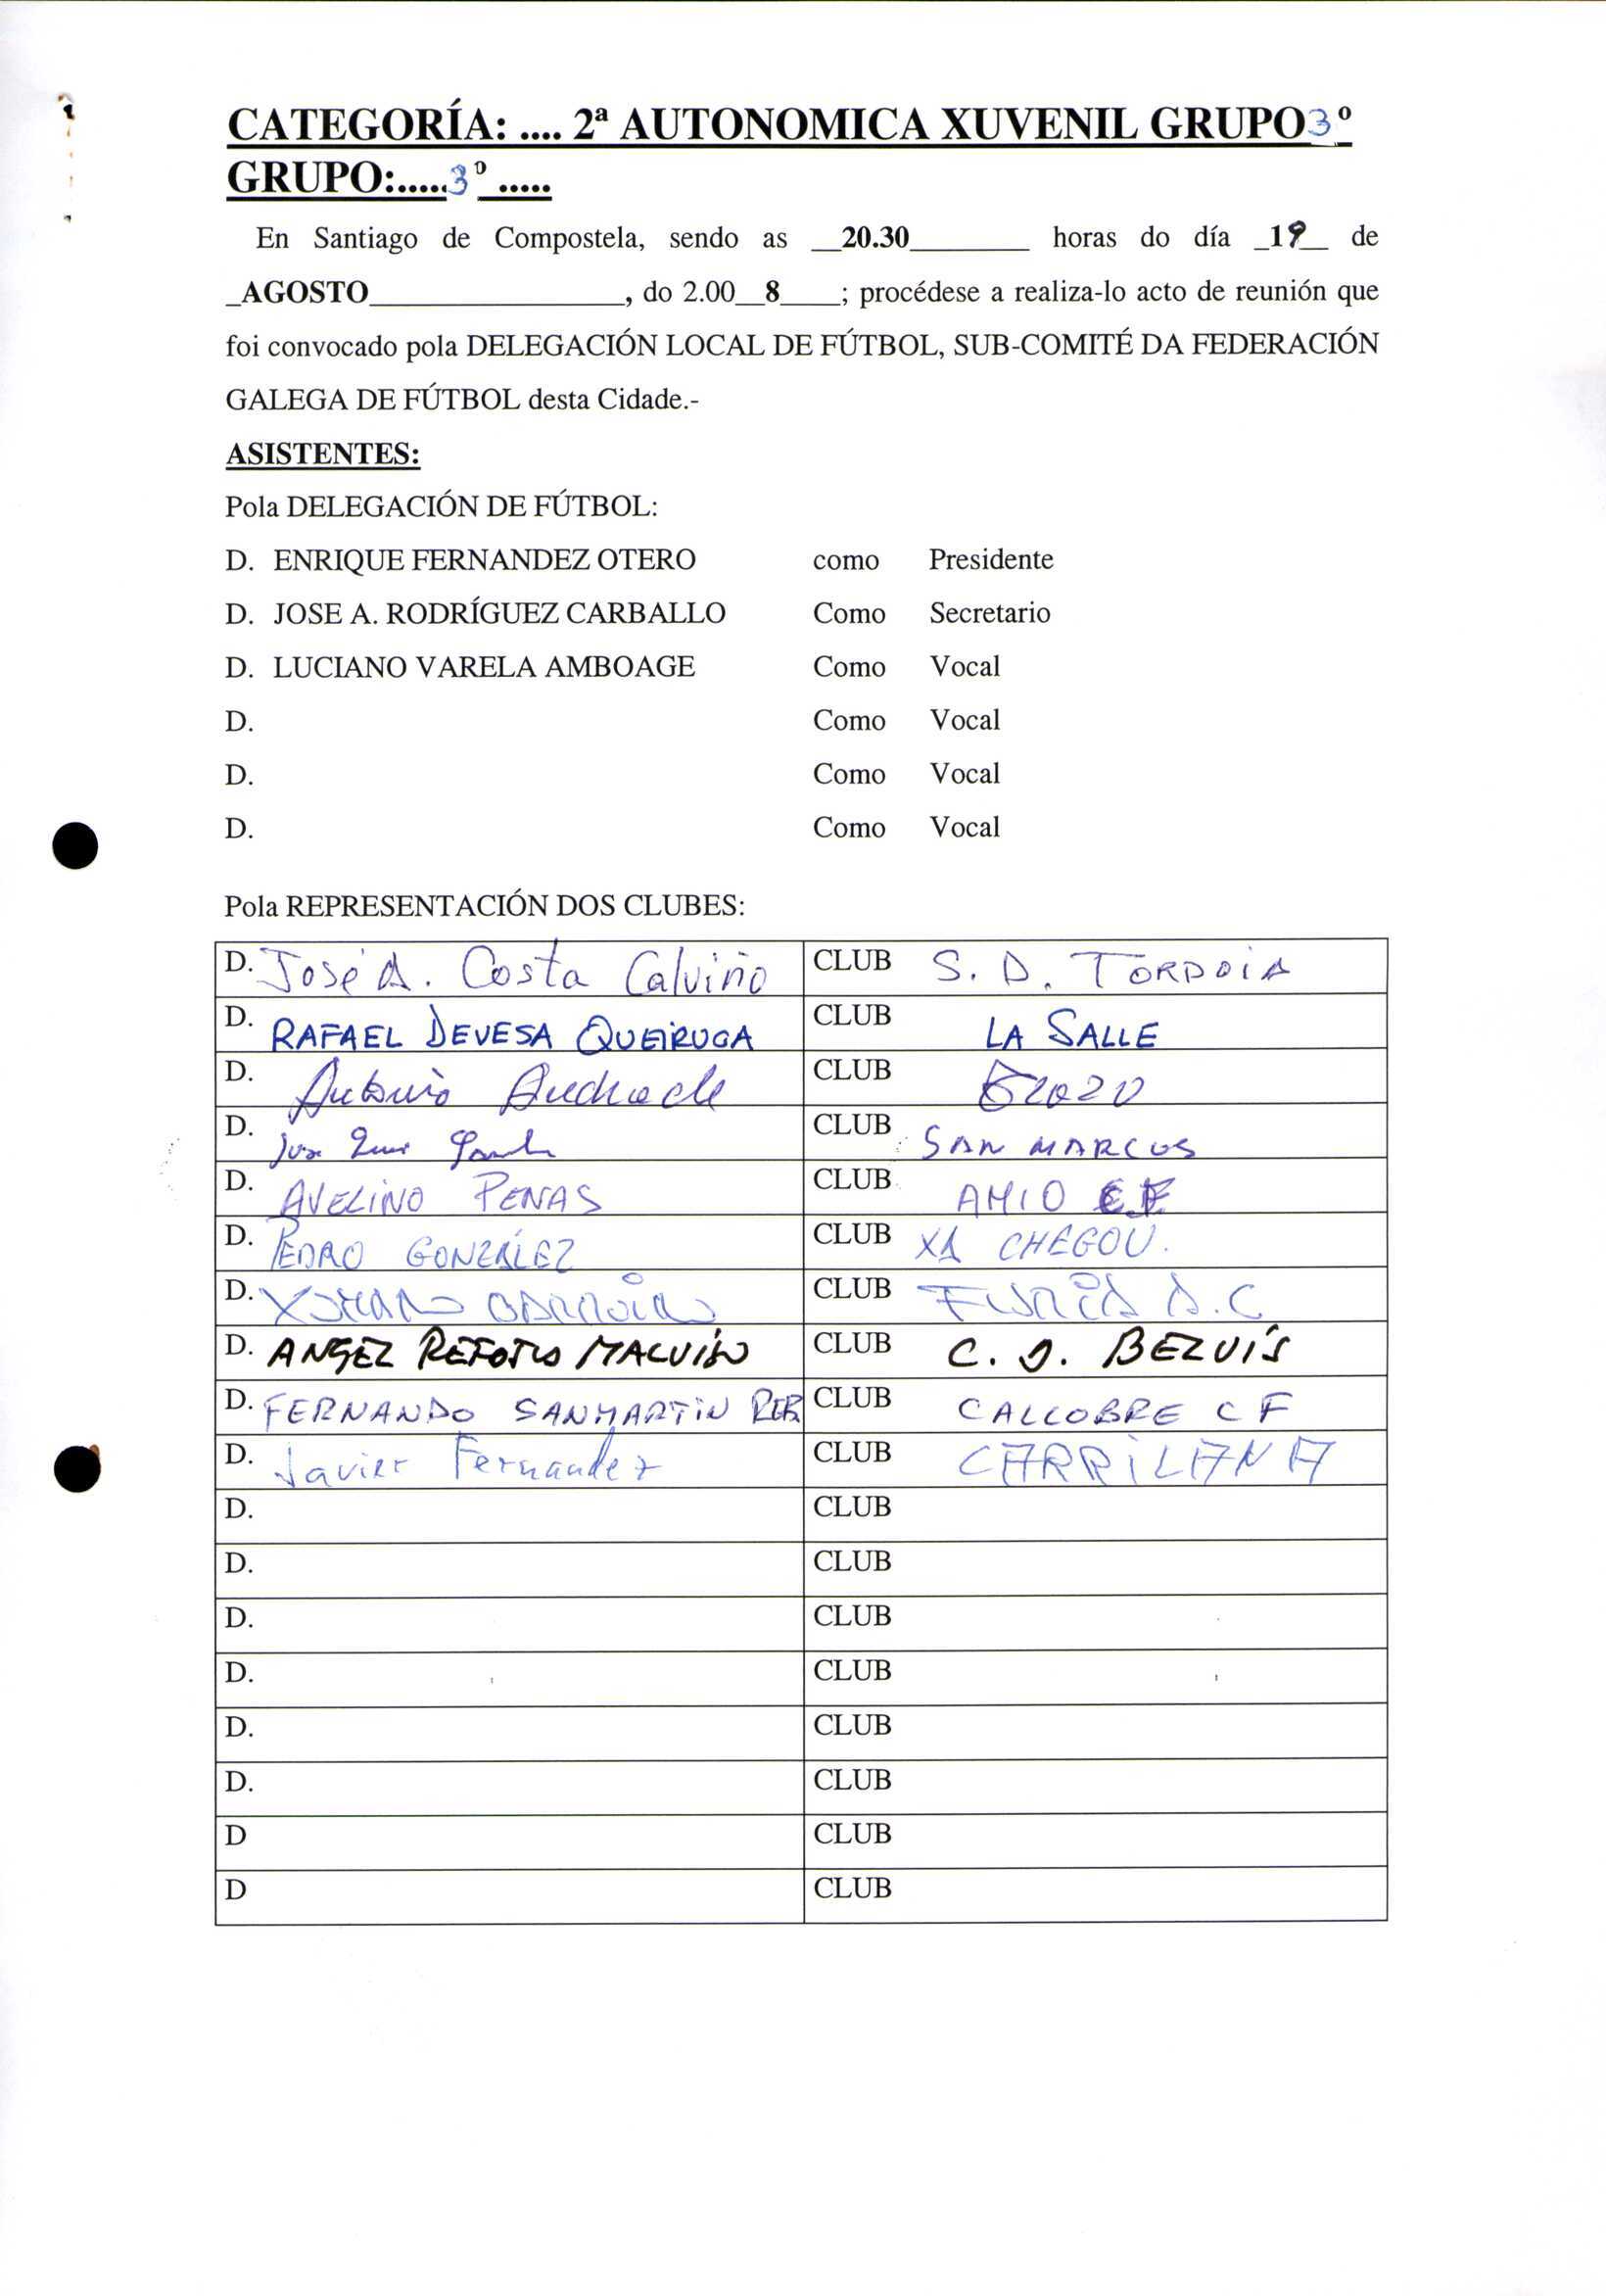 CATEGORÍA: .... 2ª AUTONOMICA XUVENIL GRUPO 3º
GRUPO:.....3º.....
En Santiago de Compostela, sendo as __20.30________ horas do día _19__ de
_AGOSTO_________________, do 2.00__8____; procédese a realiza-lo acto de reunión que
foi convocado pola DELEGACIÓN LOCAL DE FÚTBOL, SUB-COMITÉ DA FEDERACIÓN
GALEGA DE FÚTBOL desta Cidade.-
ASISTENTES:
Pola DELEGACIÓN DE FÚTBOL:
D. ENRIQUE FERNANDEZ OTERO como Presidente
D. JOSE A. RODRÍGUEZ CARBALLO Como Secretario
D. LUCIANO VARELA AMBOAGE Como Vocal
D. Como Vocal
D. Como Vocal
D. Como Vocal
Pola REPRESENTACIÓN DOS CLUBES:
D. José A. Costa Calviño CLUB S. D. TORDOIA
D. RAFAEL DEVESA QUEIRUGA CLUB LA SALLE
D. Antonio Andrade CLUB
D. Jose Luis CLUB SAN MARCOS
D. AVELINO PENAS CLUB AMIO C.F.
D. PEDRO GONZÁLEZ CLUB XA CHEGOU.
D. CLUB FURIA D.C
D. ANGEL REFOJOS MALVIDO CLUB C. D. BELVÍS
D. FERNANDO SANMARTIN CLUB CALLOBRE CF
D. Javier Fernandez CLUB CARRILANA
D. CLUB
D. CLUB
D. CLUB
D. CLUB
D. CLUB
D. CLUB
D CLUB
D CLUB